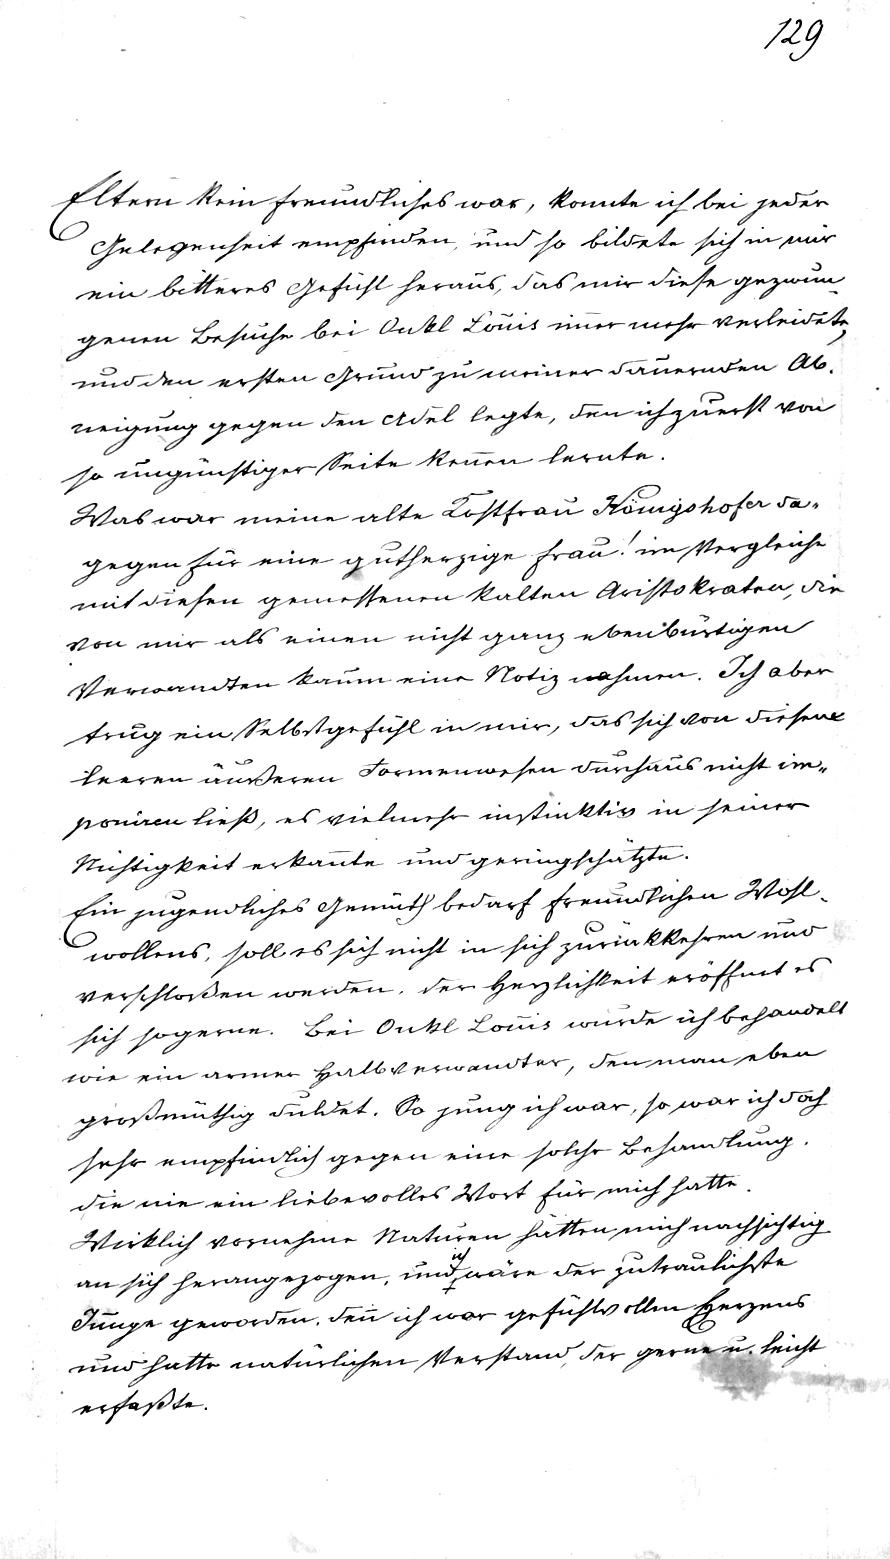 129
Eltern kein freundliches war, konnte ich bei jeder
Gelegenheit empfinden, und so bildete sich in mir
ein bitteres Gefühl heraus, das mir diese gezwun-
genen Besuche bei Onkl Louis im̄er mehr verleidete,
und den ersten Grund zu meiner dauernden Ab-
neigung gegen den Adel legte, den ich zuerst von
so ungünstiger Seite keñen lernte.
Was war meine alte Kostfrau Königshofer da-
gegen für eine gutherzige Frau! im Vergleiche
mit diesen gemessenen kalten Aristokraten, die
von mir als einen nicht ganz ebenbürtigen
Verwandten kaum eine Notiz nahmen. Ich aber
trug ein Selbstgefühl in mir, das sich von diesem
leeren äußeren Formenwesen durchaus nicht im-
poniren ließ, es vielmehr instinktiv in seiner
Nichtigkeit erkañte und geringschätzte.
Ein jugendliches Gemüth bedarf freundlichen Wohl-
wollens, soll es sich nicht in sich zurückkehren und
verschloßen werden. der Herzlichkeit eröffnet es
sich sogerne. Bei Onkl Louis wurde ich behandelt
wie ein armer Halbverwandter, den man eben
großmüthig duldet. So jung ich war, so war ich doch
sehr empfindlich gegen eine solche Behandlung.
die nie ein liebevolles Wort für mich hatte.
Wirklich vornehme Naturen hätten mich nachsichtig
an sich herangezogen, und ich wäre der zutraulichste
Junge geworden. deñ ich war gefühlvollen Herzens
und hatte natürlichen Verstand, der gerne u. leicht
erfaßte.